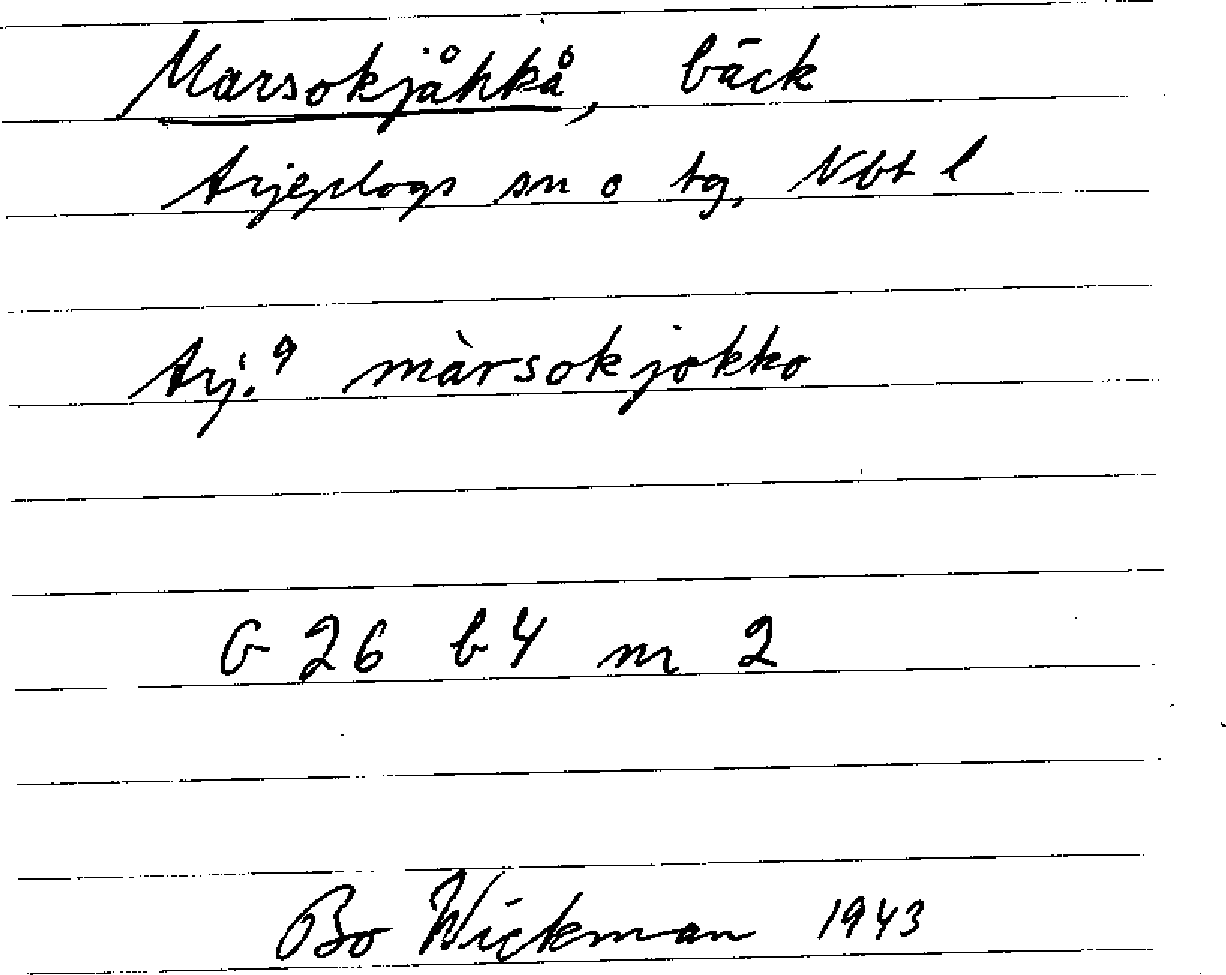 Marsokjåkkå, bäck
Arjeplogs sn o tg, Nbt l
Arj.9 màrsokjokko
G 26 b 4 nr 2
Bo Wickman 1943